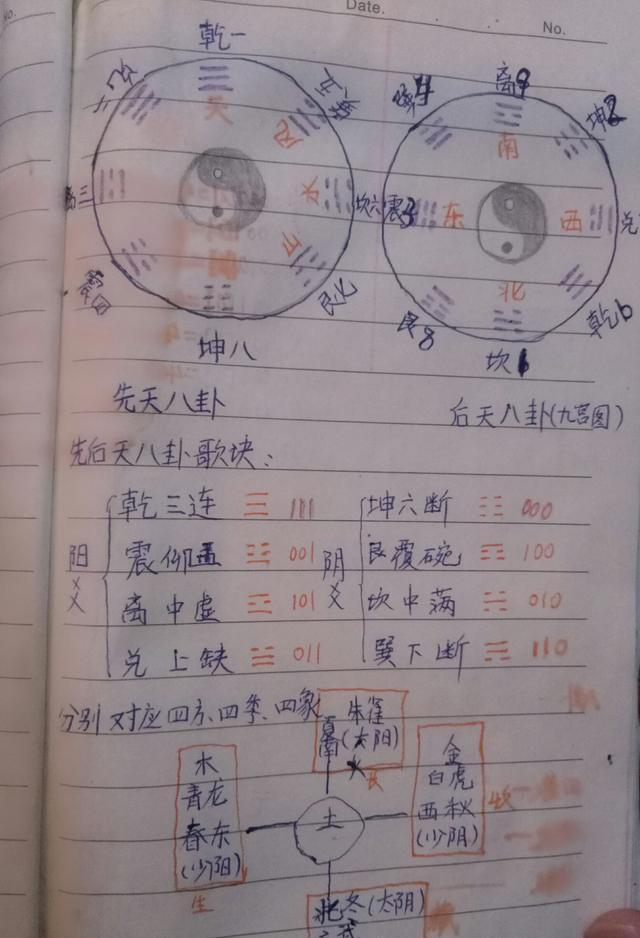 No.
Date.
No.
乾一
兑二
巽五
天
风
离三
水
坎六
山
震四
艮七
坤八
先天八卦
巽4
离9
坤2
南
震3
东
西
兑
北
艮8
乾6
坎1
后天八卦(九宫图)
先后天八卦歌块:
阳爻
乾三连 ☰ 111
震仰盂 ☳ 001
离中虚 ☲ 101
兑上缺 ☱ 011
阴爻
坤六断 ☷ 000
艮覆碗 ☶ 100
坎中满 ☵ 010
巽下断 ☴ 110
分别对应四方、四季、四象
朱雀
夏南(太阳)
火
长
木
青龙
春东
(少阳)
生
土
金
白虎
西秋
(少阴)
收
北冬(太阴)
玄武
藏